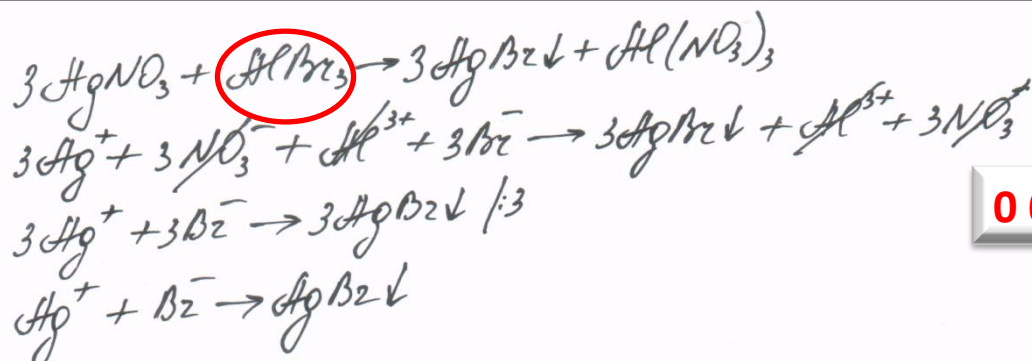 3AgNO₃ + AlBr₃ → 3AgBr↓ + Al(NO₃)₃
3Ag⁺ + 3NO₃⁻ + Al³⁺ + 3Br⁻ → 3AgBr↓ + Al³⁺ + 3NO₃⁺
3Ag⁺ + 3Br⁻ → 3AgBr↓ /:3
Ag⁺ + Br⁻ → AgBr↓
0